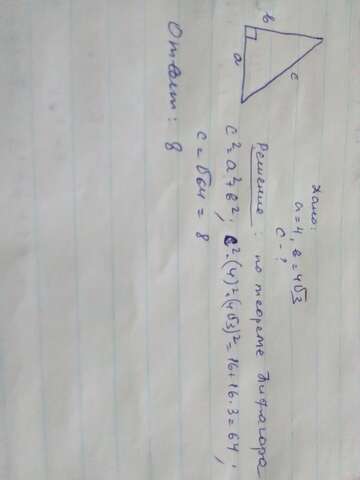 Дано:
a=4, в=4√3
c-?
в
a
c
Решение: по теореме Пифагора
c²=a²+в²; c²=(4)²+(4√3)²=16+16·3=64;
c=√64=8
Ответ: 8